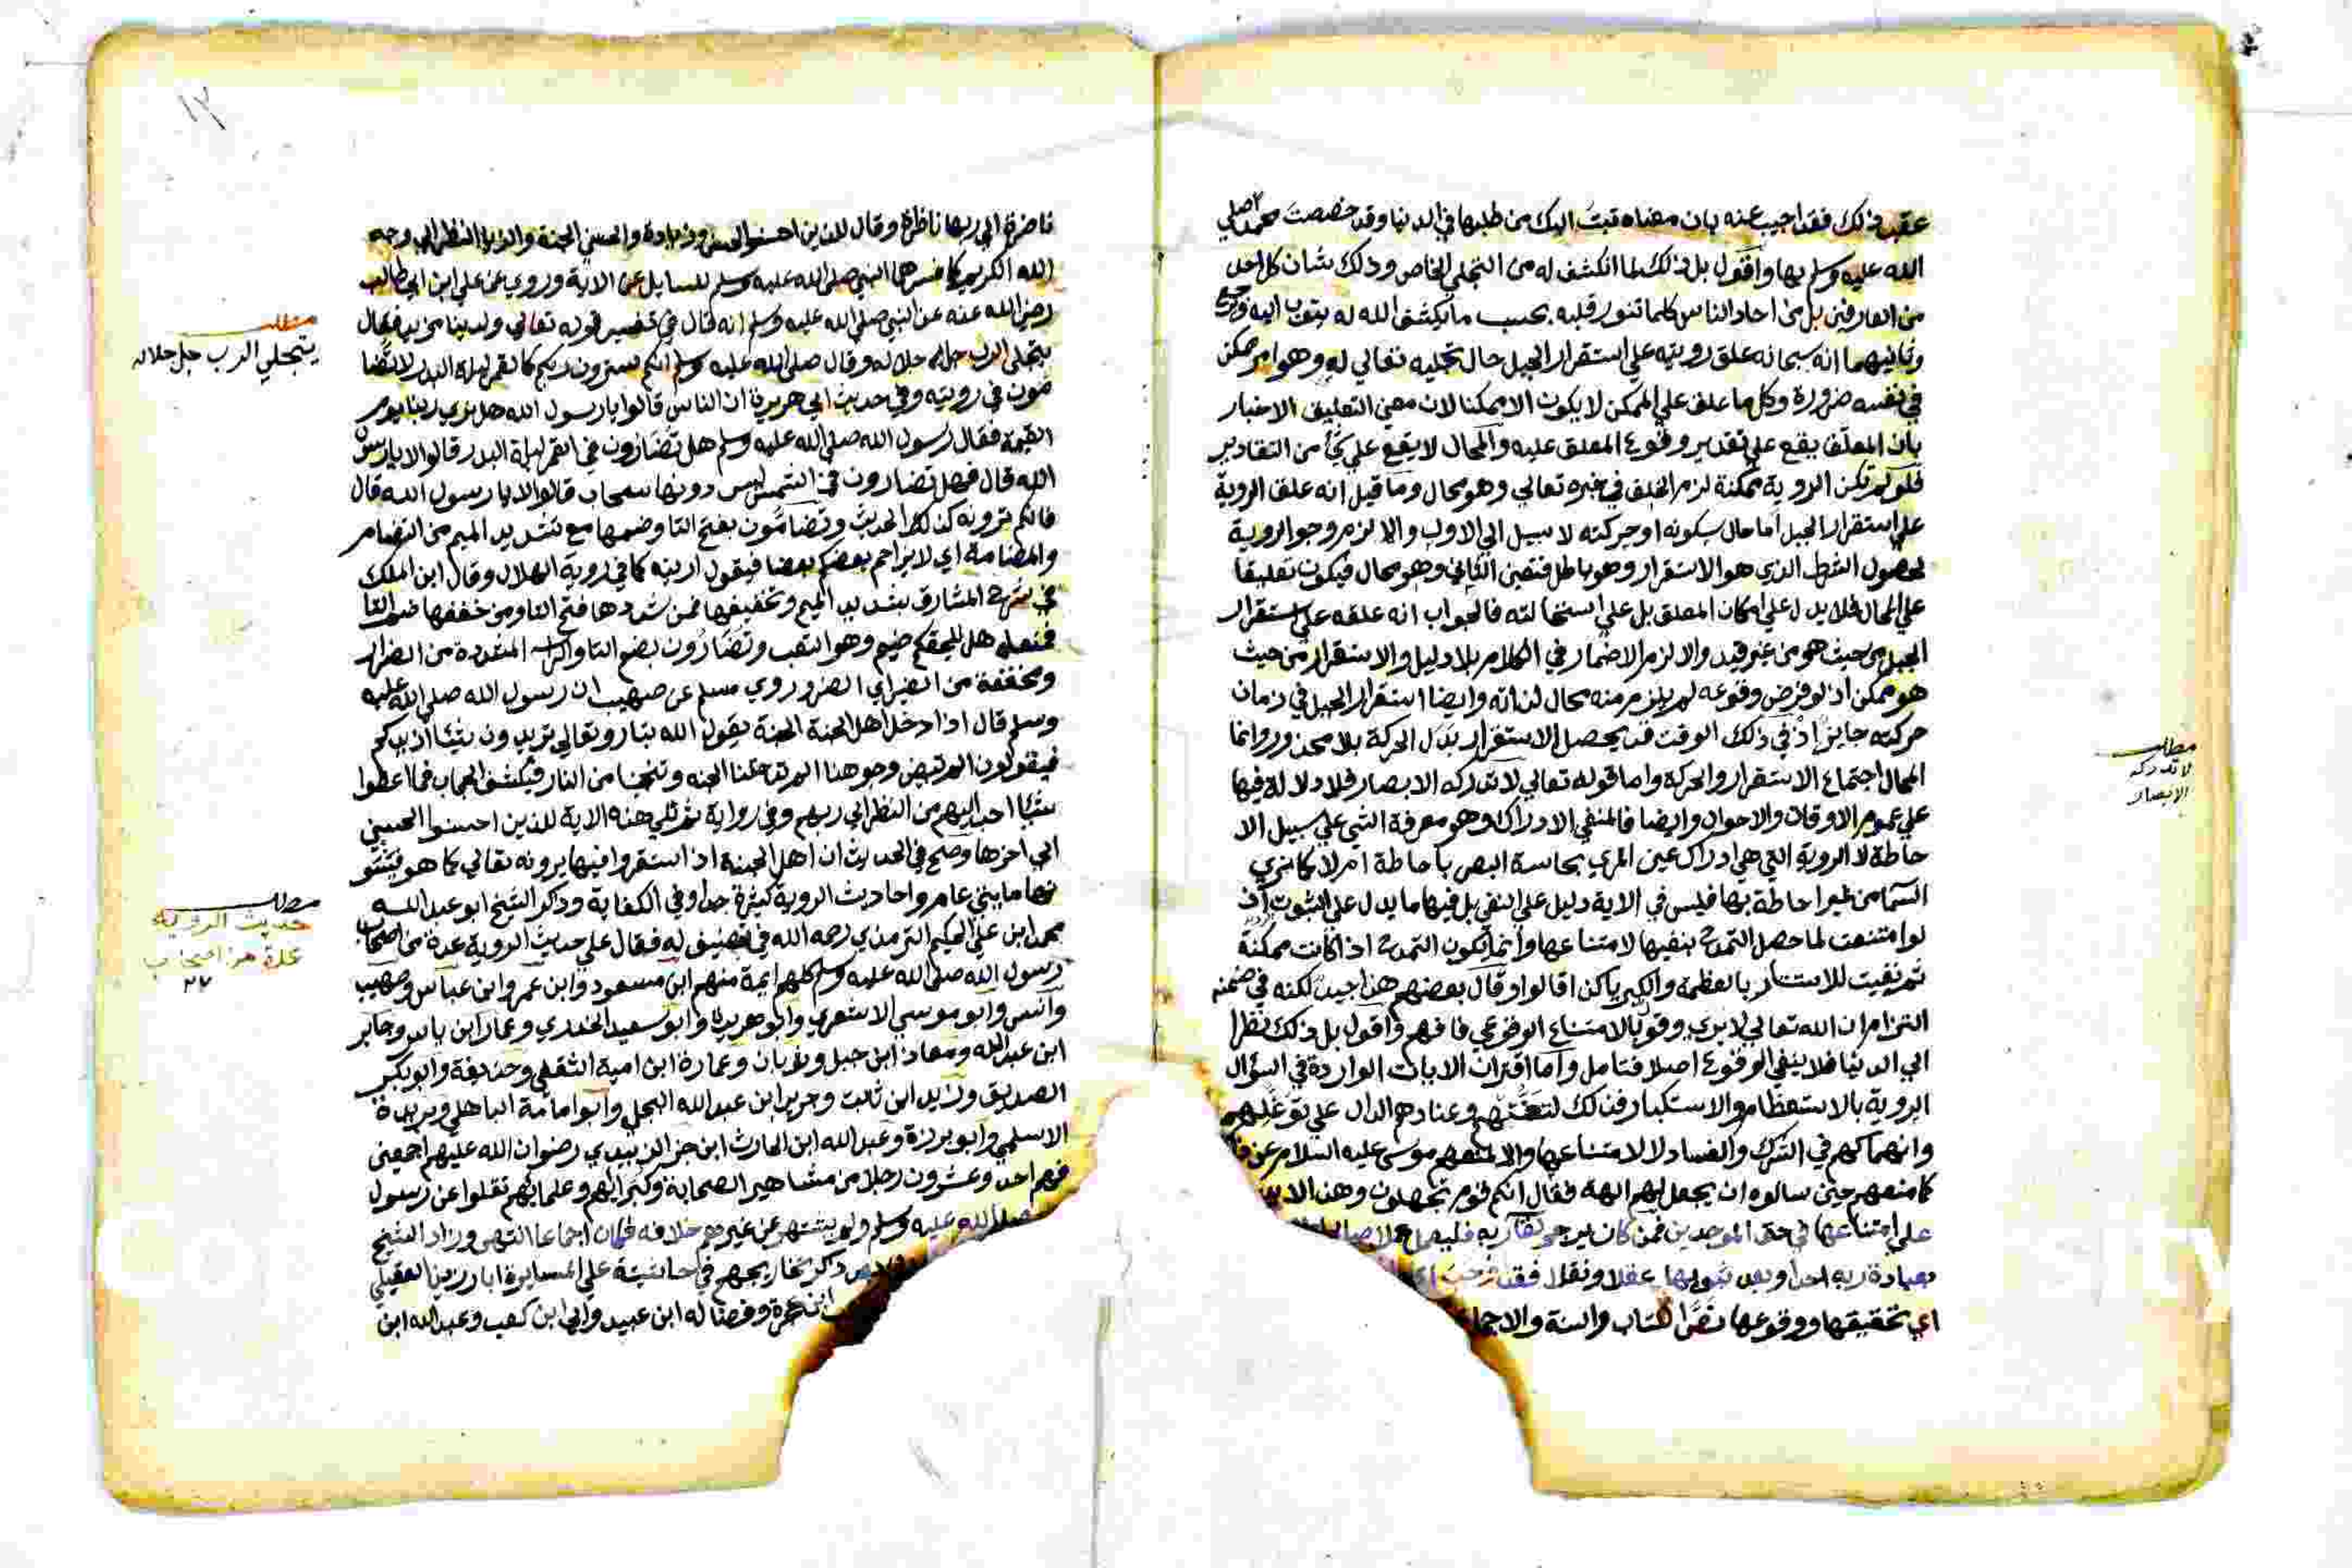 عقب ذلك فقد اجيب عنه بان معناه تبت اليك من طلبها في الدنيا وقد خصصت محمد صلي
الله عليه وسلم بها واقول بل ذلك لما انكشف له من التجلي الخاص وذلك شان كل احد
من العارفين بل من احاد الناس كلما تنور قلبه بحسب ما يكشف الله له يتوب اليه
وثانيهما انه سبحانه علق رويته علي استقرار الجبل حال تجليه تعالي له وهو امر ممكن
في نفسه ضرورة وكل ما علق علي الممكن لا يكون الا ممكنا لان معني التعليق الاخبار
بان المعلق يقع علي تقدير وقوع المعلق عليه والمحال لا يقع علي شي من التقادير
فلو لم تكن الروية ممكنة لزم الخلف في خبره تعالي وهو محال وما قيل انه علق الروية
علي استقرار الجبل اما حال سكونه او حركته لا سبيل الي الاول والا لزم وجوا لروية
لحصول الشرط الذي هو الاستقرار وهو باطل فتعين الثاني وهو محال فيكون تعليقا
علي المحال فلا يدل علي امكان المعلق بل علي استحالته فالجواب انه علقه علي استقرار
الجبل من حيث هو من غير قيد والا لزم الاضمار في الكلام بلا دليل والاستقرار من حيث
هو ممكن اذ لو فرض وقوعه لم يلزم منه محال لذاته وايضا استقرار الجبل في زمان
حركته جايز اذ في ذلك الوقت قد يحصل الاستقرار بدل الحركة بلا محذور وانما
المحال اجتماع الاستقرار والحركة واما قوله تعالي لا تدركه الابصار فلا دلالة فيها
علي عموم الاوقات والاحوال وايضا فالمنفي الادراك وهو معرفة الشي علي سبيل الا
حاطة لا الروية التي هي ادراك عين المري بحاسة البصر باحاطة ام لا كما نري
السما من غير احاطة بها فليس في الاية دليل علي النفي بل فيها ما يدل علي الثبوت اذ
لو امتنعت لما حصل التمدح بنفيها لامتناعها وانما يكون التمدح اذا كانت ممكنة
ثم نفيت للاستتار بالعظمة والكبرياء كذا قالوا وقال بعضهم هذا جيد لكنه في ضمنه
التزام ان الله تعالي لا يري وقولا بالامتناع الوقوعي فافهم واقول بل ذلك نظرا
الي الدنيا فلا ينفي الوقوع اصلا فتامل واما اقتران الايات الواردة في السؤال
الروية بالاستعظام والاستكبار فذلك لتعنتهم وعنادهم الدال علي توغلهم
وانهماكهم في الشرك والفساد لا لامتناعها والا لمنعهم موسي عليه السلام عن
كما منعهم حين سالوه ان يجعل لهم الهة فقال انكم قوم تجهلون وهذا
علي امتناعها في حق الموحدين فمن كان يرجو لقا ربه فليعمل عملا
بعبادة ربه احدا وبعد ثبوتها عقلا ونقلا فقد
اي تحقيقها ووقوعها نصا الكتاب والسنة والاجماع
مطلب
لا تدركه
الابصار
١٢
ناضرة الي ربها ناظرة وقال للذين احسنوا الحسني وزيادة والحسني الجنة والزيادة النظر الي وجه
الله الكريم كما فسرها النبي صلي الله عليه وسلم للسايل عن الاية وروي عن علي ابن ابي طالب
رضي الله عنه عن النبي صلي الله عليه وسلم انه قال في تفسير قوله تعالي ولدينا مزيد فقال
يتجلي الرب جل جلاله وقال صلي الله عليه وسلم انكم سترون ربكم كالقمر ليلة البدر لا تضا
مون في رويته وفي حديث ابي هريرة ان الناس قالوا يا رسول الله هل نري ربنا يوم
القيمة فقال رسول الله صلي الله عليه وسلم هل تضارون في القمر ليلة البدر قالوا لا يا رسول
الله قال فهل تضارون في الشمس ليس دونها سحاب قالوا لا يا رسول الله قال
فانكم ترونه كذلك الحديث وتضامون بفتح التا وضمها مع تشديد الميم من التضام
والمضامة اي لا يزاحم بعضكم بعضا فيقول ارينه كما في روية الهلال وقال ابن الملك
في شرح المشارق بتشديد الميم وتخفيفها فمن شددها فتح التا ومن خففها ضم التا
فمعناه هل يلحقكم ضيم وهو التعب وتضارون بضم التا والرا المشددة من الضرار
ومخففة من الضير اي الضرر وروي مسلم عن صهيب ان رسول الله صلي الله عليه
وسلم قال اذا دخل اهل الجنة الجنة يقول الله تبار وتعالي تريدون شيئا ازيدكم
فيقولون الم تبيض وجوهنا الم تدخلنا الجنة وتنجنا من النار فيكشف الحجاب فما اعطوا
شيئا احب اليهم من النظر الي ربهم وفي رواية ثم تلي هذه الاية للذين احسنوا الحسني
الي اخرها وصح في الحديث ان اهل الجنة اذا استقروا فيها يرونه تعالي كما هو
ما بيني عامر واحاديث الروية كثيرة جدا وفي الكفاية وذكر الشيخ ابو عبد الله
محمد ابن علي الحكيم الترمذي رحمه الله في تصنيف له فقال علي حديث الروية عدة من اصحاب
رسول الله صلي الله عليه وسلم كلهم ايمة منهم ابن مسعود وابن عمر وابن عباس وصهيب
وانس وابو موسي الاشعري وابو هريرة وابو سعيد الخدري وعمار ابن ياسر وجابر
ابن عبد الله ومعاذ ابن جبل وثوبان وعمارة ابن امية الثقفي وحذيفة وابو بكر
الصديق وزيد ابن ثابت وجرير ابن عبد الله البجلي وابو امامة الباهلي وبريدة
الاسلمي وابو برزة وعبد الله ابن الحارث ابن جز الزبيدي رضوان الله عليهم اجمعين
فهم احد وعشرون رجلا من مشاهير الصحابة وكبرائهم وعلمائهم نقلوا عن رسول
صلي الله عليه وسلم ولم يشتهر عن غيرهم خلافه فكان اجماعا انتهي وزاد الشيخ
ذكر تخاريجهم في حاشيته علي المسايرة ابا رزين العقيلي
وفضالة ابن عبيد وابي ابن كعب وعبد الله ابن
مطلب
يتجلي الرب جل جلاله
مطلب
حديث الروية
عدة من اصحاب